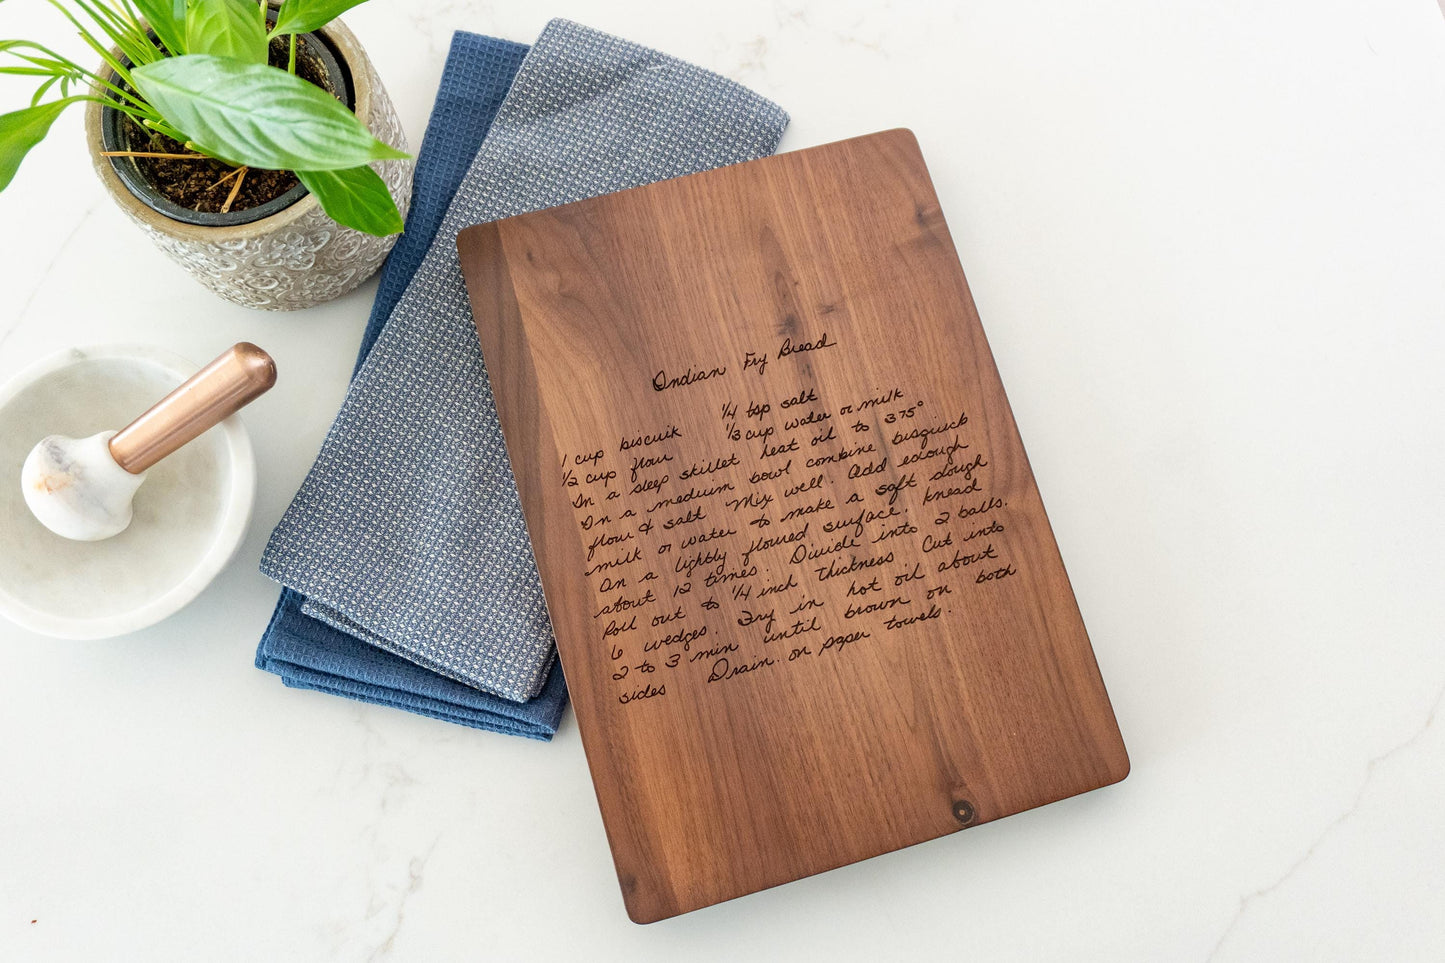 Indian Fry Bread
1 cup biscuik    1/4 tsp salt
1/2 cup flour    1/3 cup water or milk
In a deep skillet heat oil to 375°
In a medium bowl combine bisquick
flour & salt Mix well. Add edough
milk or water to make a soft dough
On a lightly floured surface. knead
about 12 times. Divide into 2 balls.
Roll out to 1/4 inch thickness Cut into
6 wedges. Fry in hot oil about
2 to 3 min until brown on both
sides Drain. on paper towels.